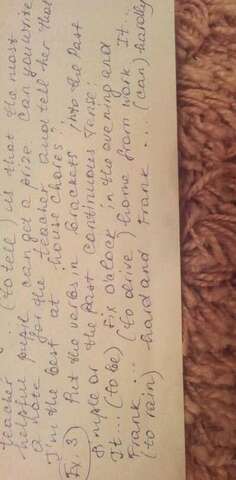 teacher ... (to tell) us that the most
helpful pupil can get a prize. Can you write
a note for the teacher and tell her that
I'm the best at house chores?
Ex. 3) Put the verbs in brackets into the Past
Simple or the Past Continuous Tense:
It ... (to be) six o'clock in the evening and
Frank ... (to drive) home from work. It ...
(to rain) hard and Frank ... (can) hardly